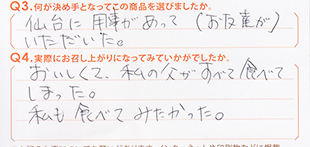 Q3.何が決め手となってこの商品を選びましたか。
仙台に用事があって(お友達が)
いただいた。
Q4.実際にお召し上がりになってみていかがでしたか。
おいしくて、私の父がすべて食べて
しまった。
私も食べてみたかった。